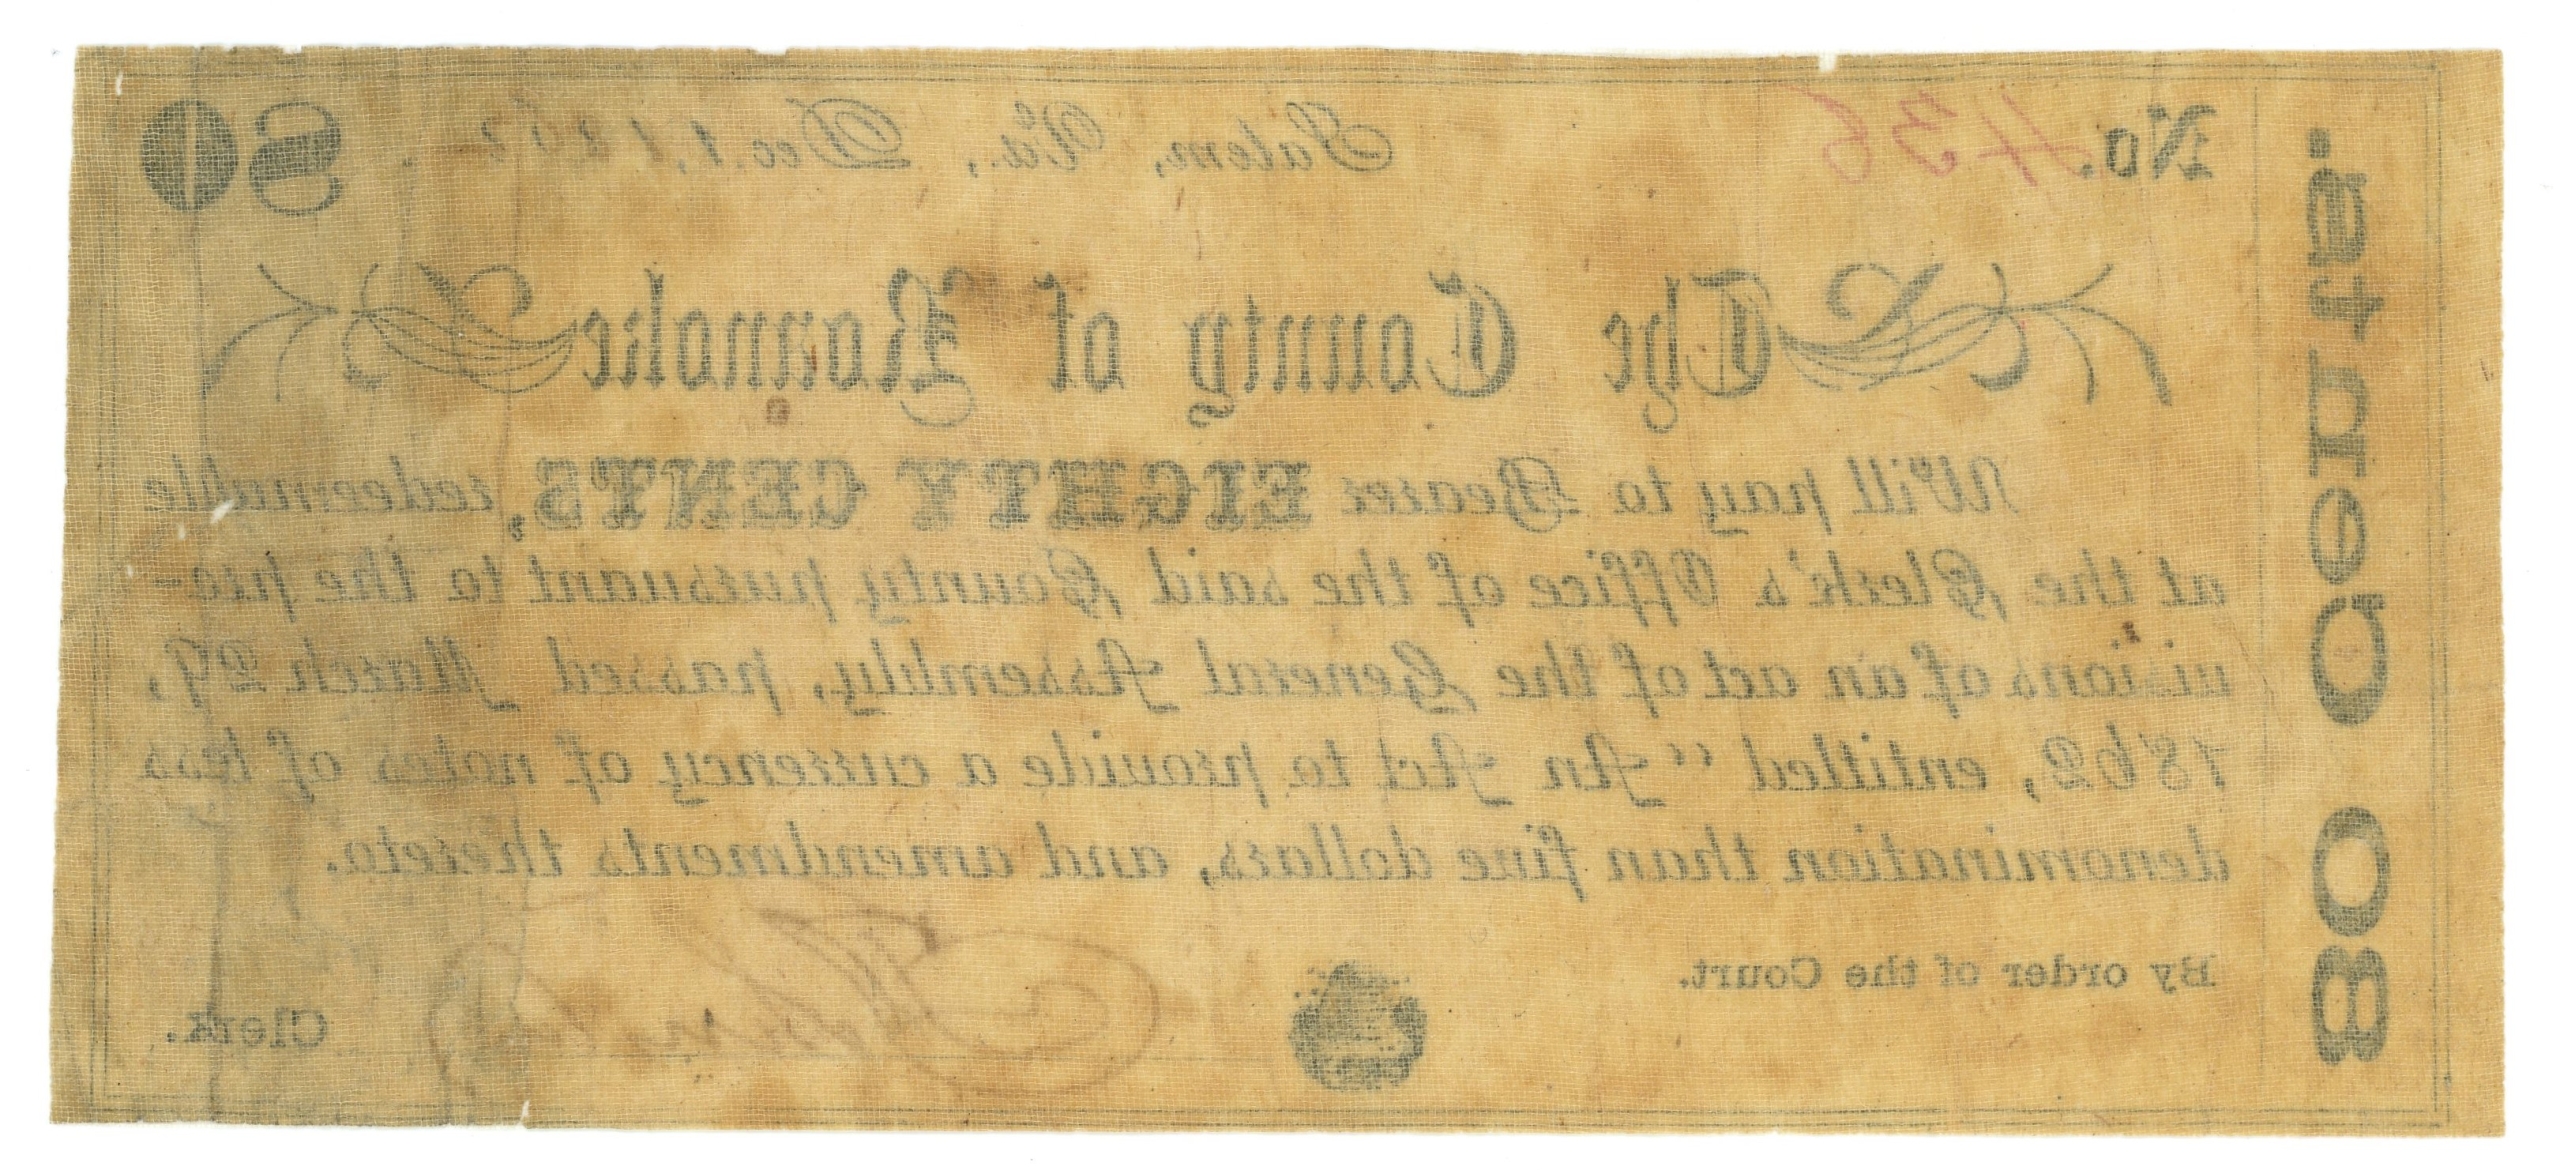 No. 436 Salem, Va., Dec. 1, 1862. 80
The County of Roanoke
Will pay to Bearer EIGHTY CENTS, redeemable
at the Clerk's Office of the said County pursuant to the pro-
visions of an act of the General Assembly, passed March 29,
1862, entitled "An Act to provide a currency of notes of less
denomination than five dollars, and amendments thereto.
By order of the Court.
Clerk.
80 Cents.